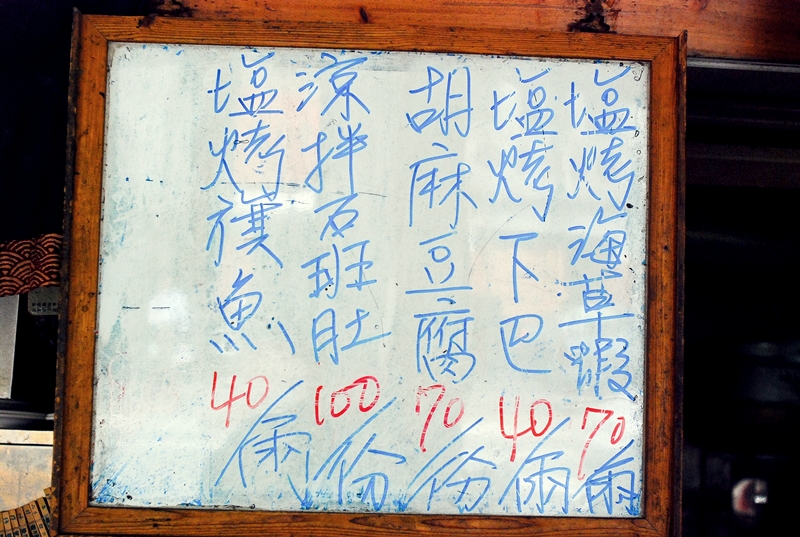 塩烤海草蝦70/両
塩烤下巴40/両
胡麻豆腐70/份
涼拌石班肚100/份
塩烤旗魚40/両